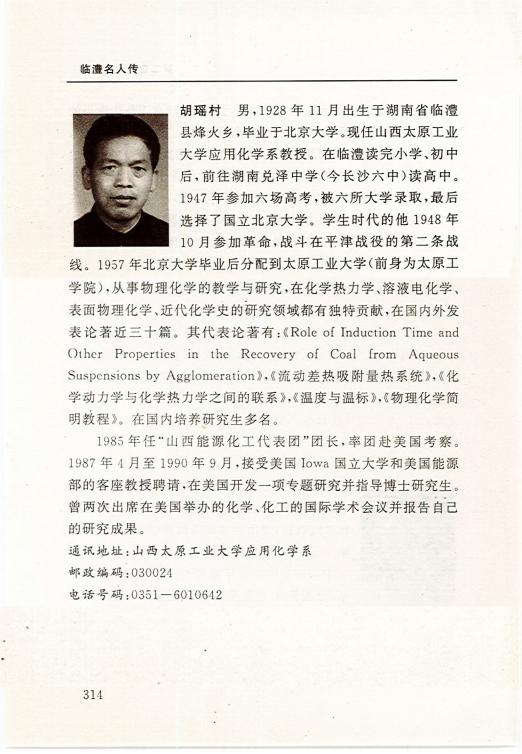 临澧名人传
胡瑶村　男,1928 年 11 月出生于湖南省临澧
县烽火乡,毕业于北京大学。现任山西太原工业
大学应用化学系教授。在临澧读完小学、初中
后,前往湖南兑泽中学(今长沙六中)读高中。
1947 年参加六场高考,被六所大学录取,最后
选择了国立北京大学。学生时代的他 1948 年
10 月参加革命,战斗在平津战役的第二条战
线。1957 年北京大学毕业后分配到太原工业大学(前身为太原工
学院),从事物理化学的教学与研究,在化学热力学、溶液电化学、
表面物理化学、近代化学史的研究领域都有独特贡献,在国内外发
表论著近三十篇。其代表论著有:《Role of Induction Time and
Other Properties in the Recovery of Coal from Aqueous
Suspensions by Agglomeration》,《流动差热吸附量热系统》,《化
学动力学与化学热力学之间的联系》,《温度与温标》,《物理化学简
明教程》。在国内培养研究生多名。
1985 年任“山西能源化工代表团”团长,率团赴美国考察。
1987 年 4 月至 1990 年 9 月,接受美国 Iowa 国立大学和美国能源
部的客座教授聘请,在美国开发一项专题研究并指导博士研究生。
曾两次出席在美国举办的化学、化工的国际学术会议并报告自己
的研究成果。
通讯地址:山西太原工业大学应用化学系
邮政编码:030024
电话号码:0351—6010642
314